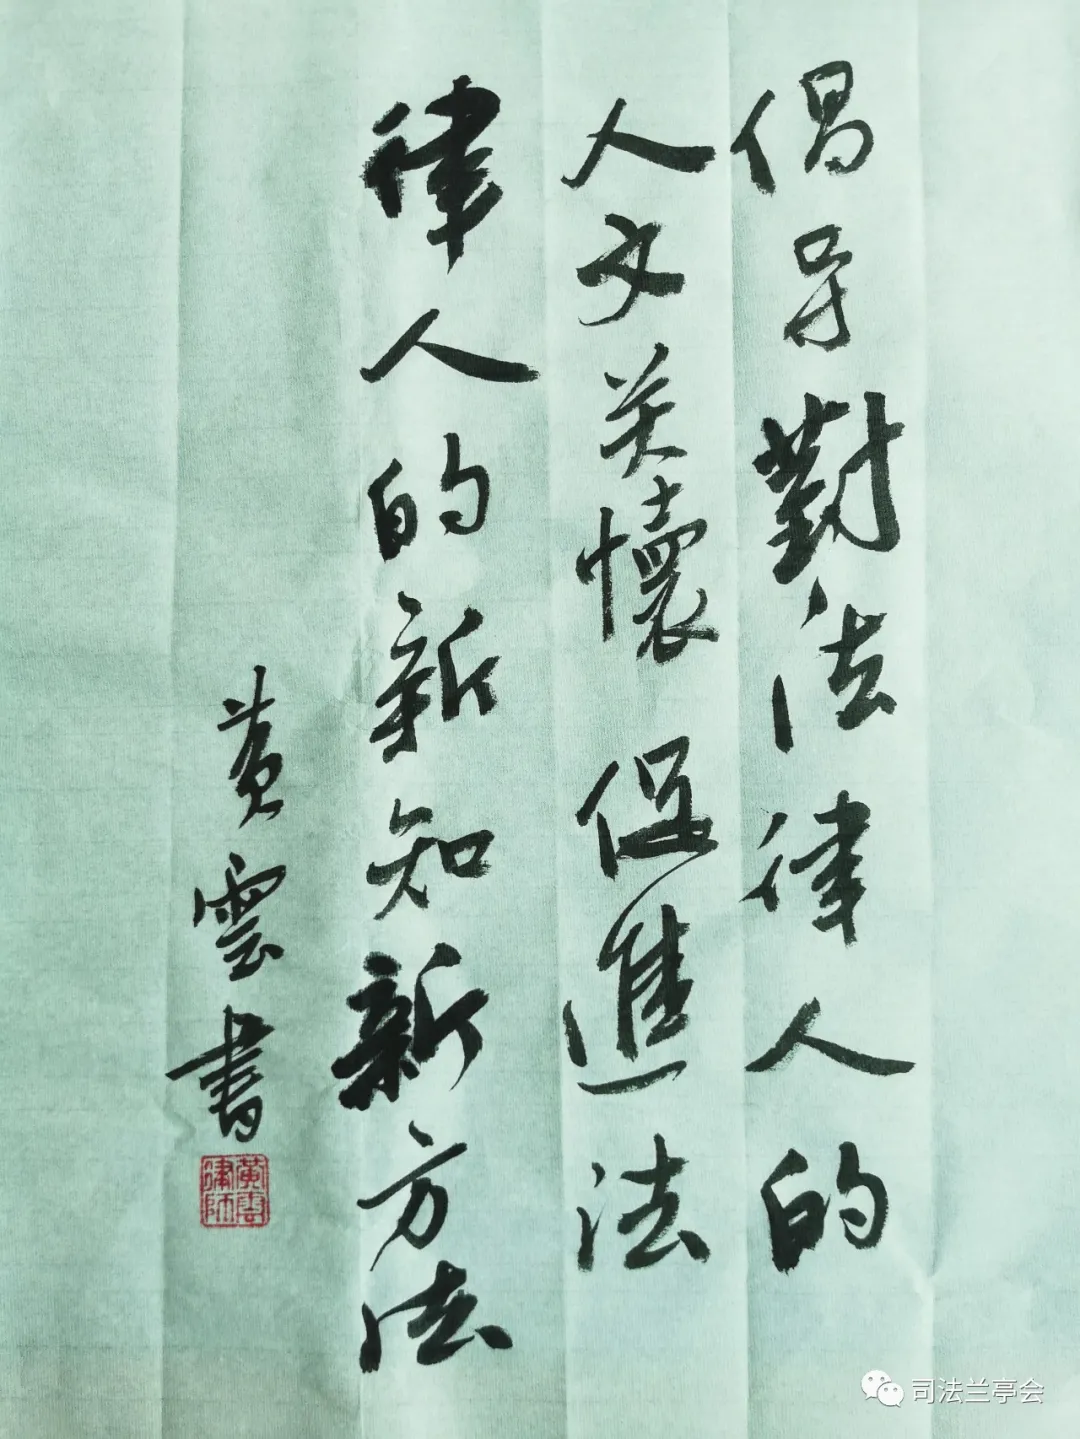 倡导對法律人的
人文关懷促進法
律人的新知新方法
黄雲書
黄雲律師
司法兰亭会